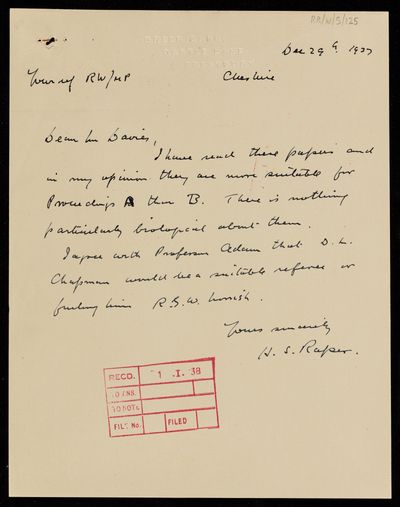 RR/W/S/125
Dec 29th 1937
Your ref RW/HP
Cheshire
Dear Mr Davies,
I have read these papers and
in my opinion they are more suitable for
Proceedings A than B. There is nothing
particularly biological about them.
I agree with Professor Adam that D. L.
Chapman would be a suitable referee or
failing him R.G.W. Norrish.
Yours sincerely
H. S. Raper.
RECD. 1 .I. 38
TO NOTE
FILE No. FILED